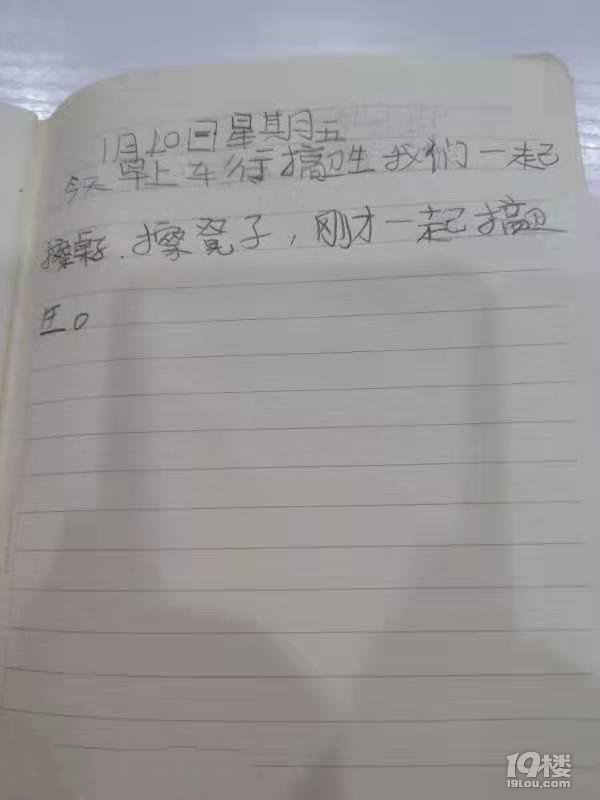 1月10日星期五
今天早上车行搞卫生我们一起
擦桌子.擦凳子,刚才一起搞卫
生。
19楼
19lou.com